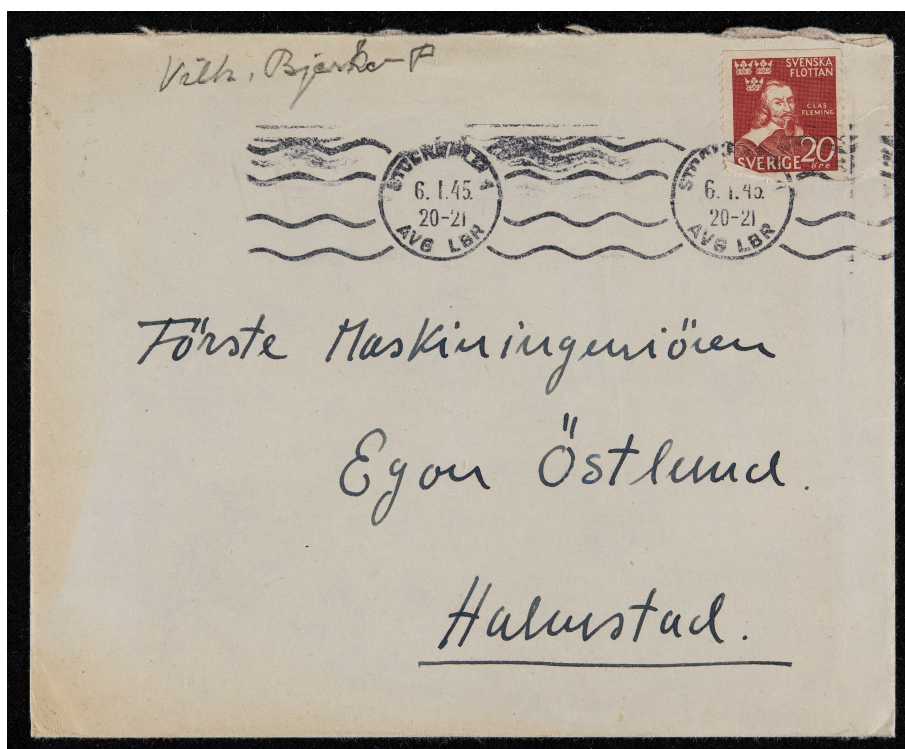 Vilh. Bjerke-P
SVENSKA
FLOTTAN
CLAS
FLEMING
SVERIGE 20
öre
6. 1. 45.
20-21
AVG LBR
6. 1. 45.
20-21
AVG LBR
Förste Maskiningeniören
Egon Östlund.
Halmstad.